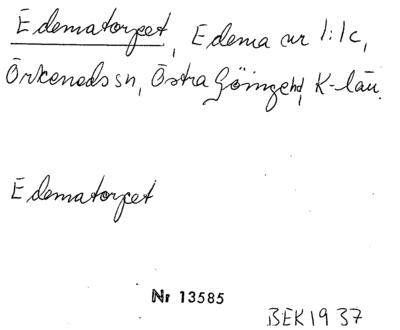 Edematorpet, Edema nr 1:1c,
Örkeneds sn, Östra Göinge hd, K-län.
Edematorpet
Nr 13585
BEK 1937